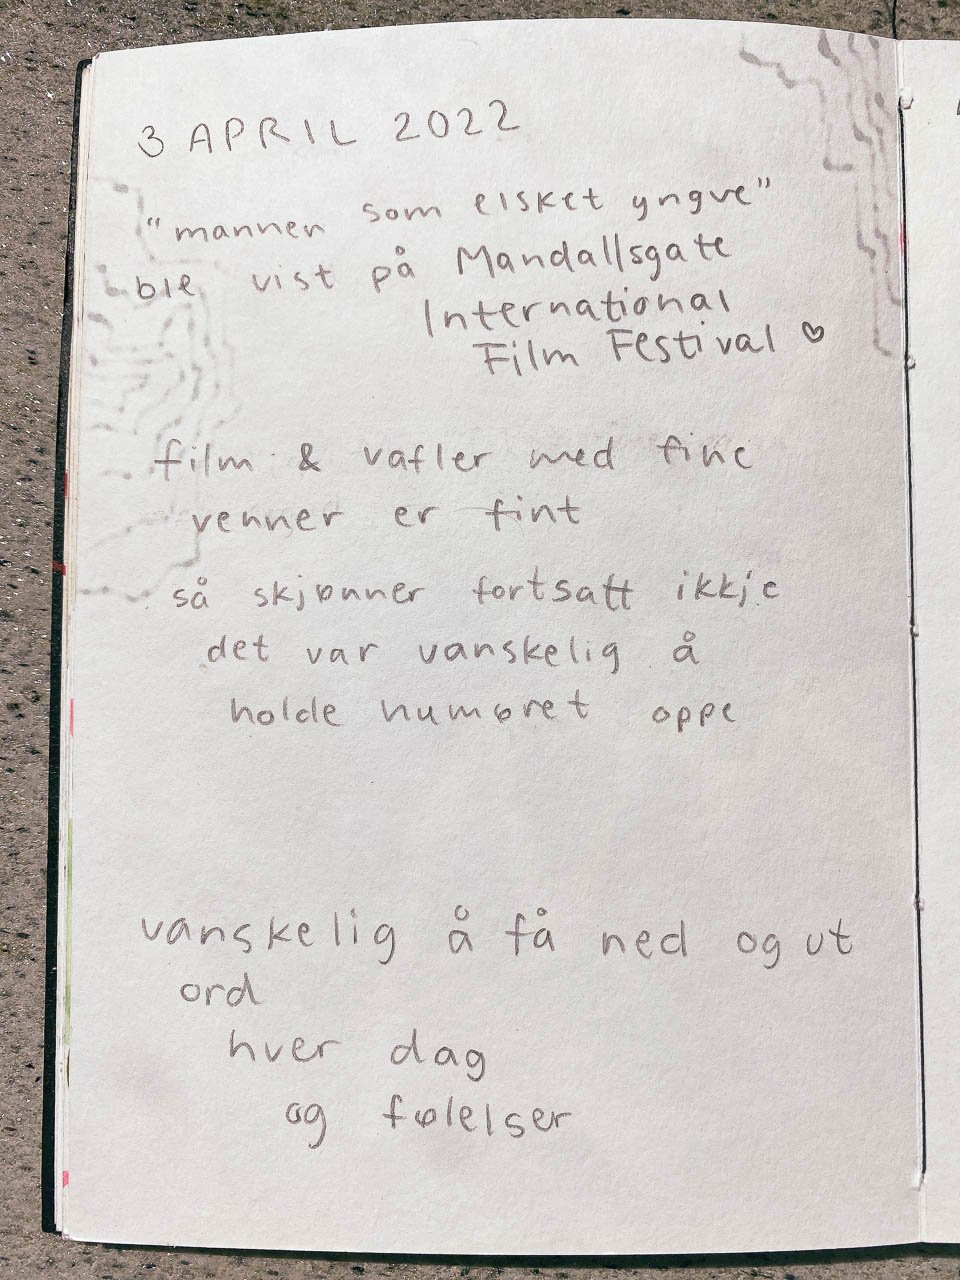 3 APRIL 2022
"mannen som elsket yngve"
ble vist på Mandallsgate
International
Film Festival ♡
film & vafler med fine
venner er fint
så skjønner fortsatt ikkje
det var vanskelig å
holde humøret oppe
vanskelig å få ned og ut
ord
hver dag
og følelser